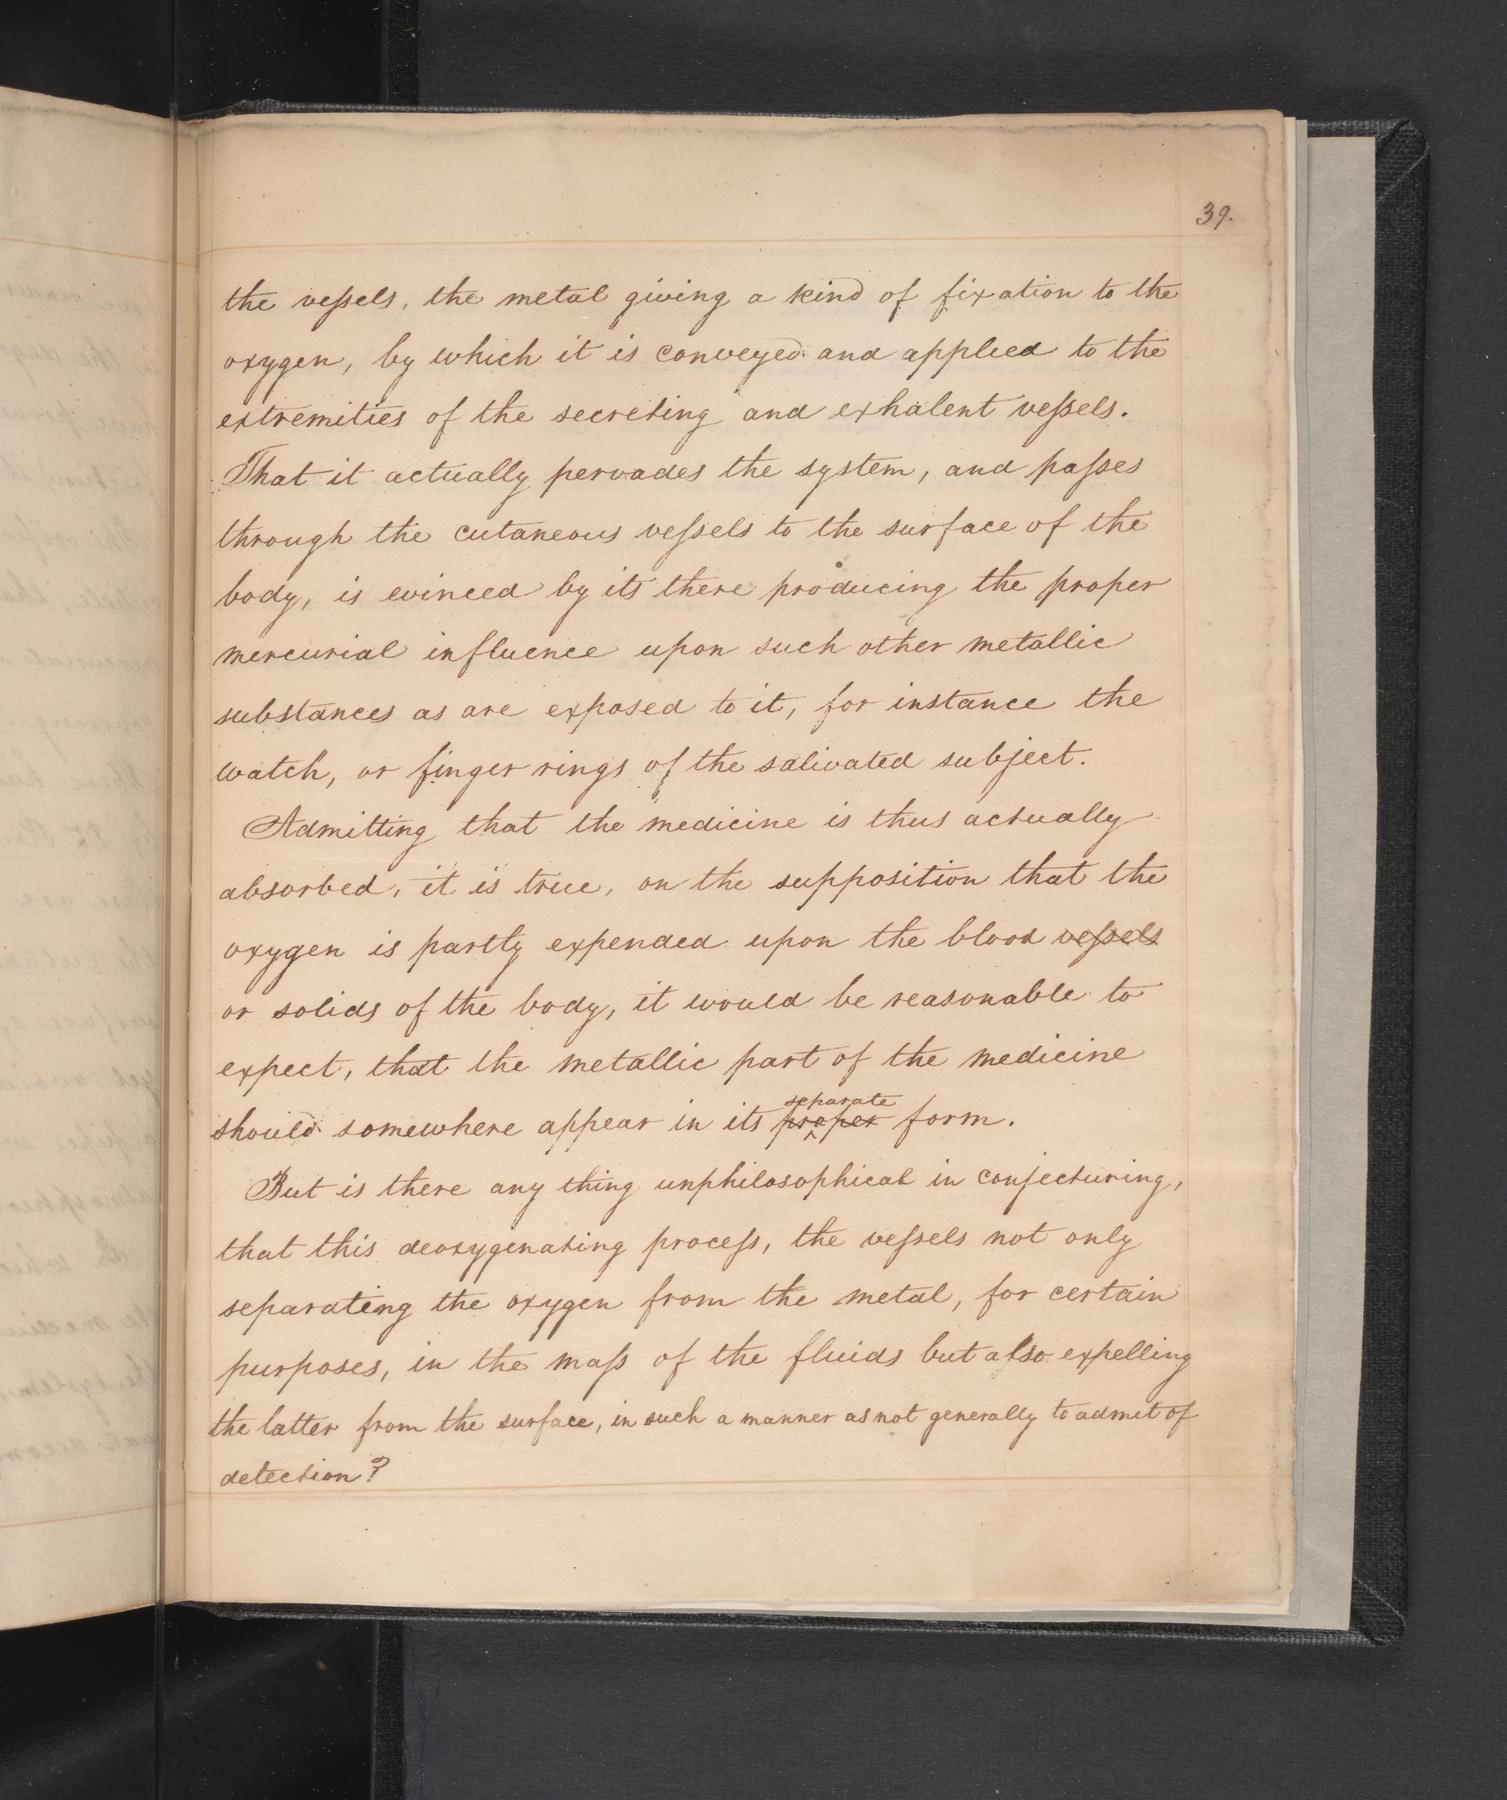 39.
the veſsels, the metal giving a kind of fixation to the
oxygen, by which it is conveyed and applied to the
extremities of the secreting and exhalent veſsels.
That it actually pervades the system, and paſses
through the cutaneous veſsels to the surface of the
body, is evinced by its there producing the proper
mercurial influence upon such other metallic
substances as are exposed to it, for instance the
watch, or finger rings of the salivated subject.
Admitting that the medicine is thus actually
absorbed, it is true, on the supposition that the
oxygen is partly expended upon the blood veſsels
or solids of the body, it would be reasonable to
expect, that the metallic part of the medicine
separate
should somewhere appear in its proper form.
But is there any thing unphilosophical in conjecturing,
that this deoxygenating proceſs, the veſsels not only
separating the oxygen from the metal, for certain
purposes, in the maſs of the fluids but also expelling
the latter from the surface, in such a manner as not generally to admit of
detection?